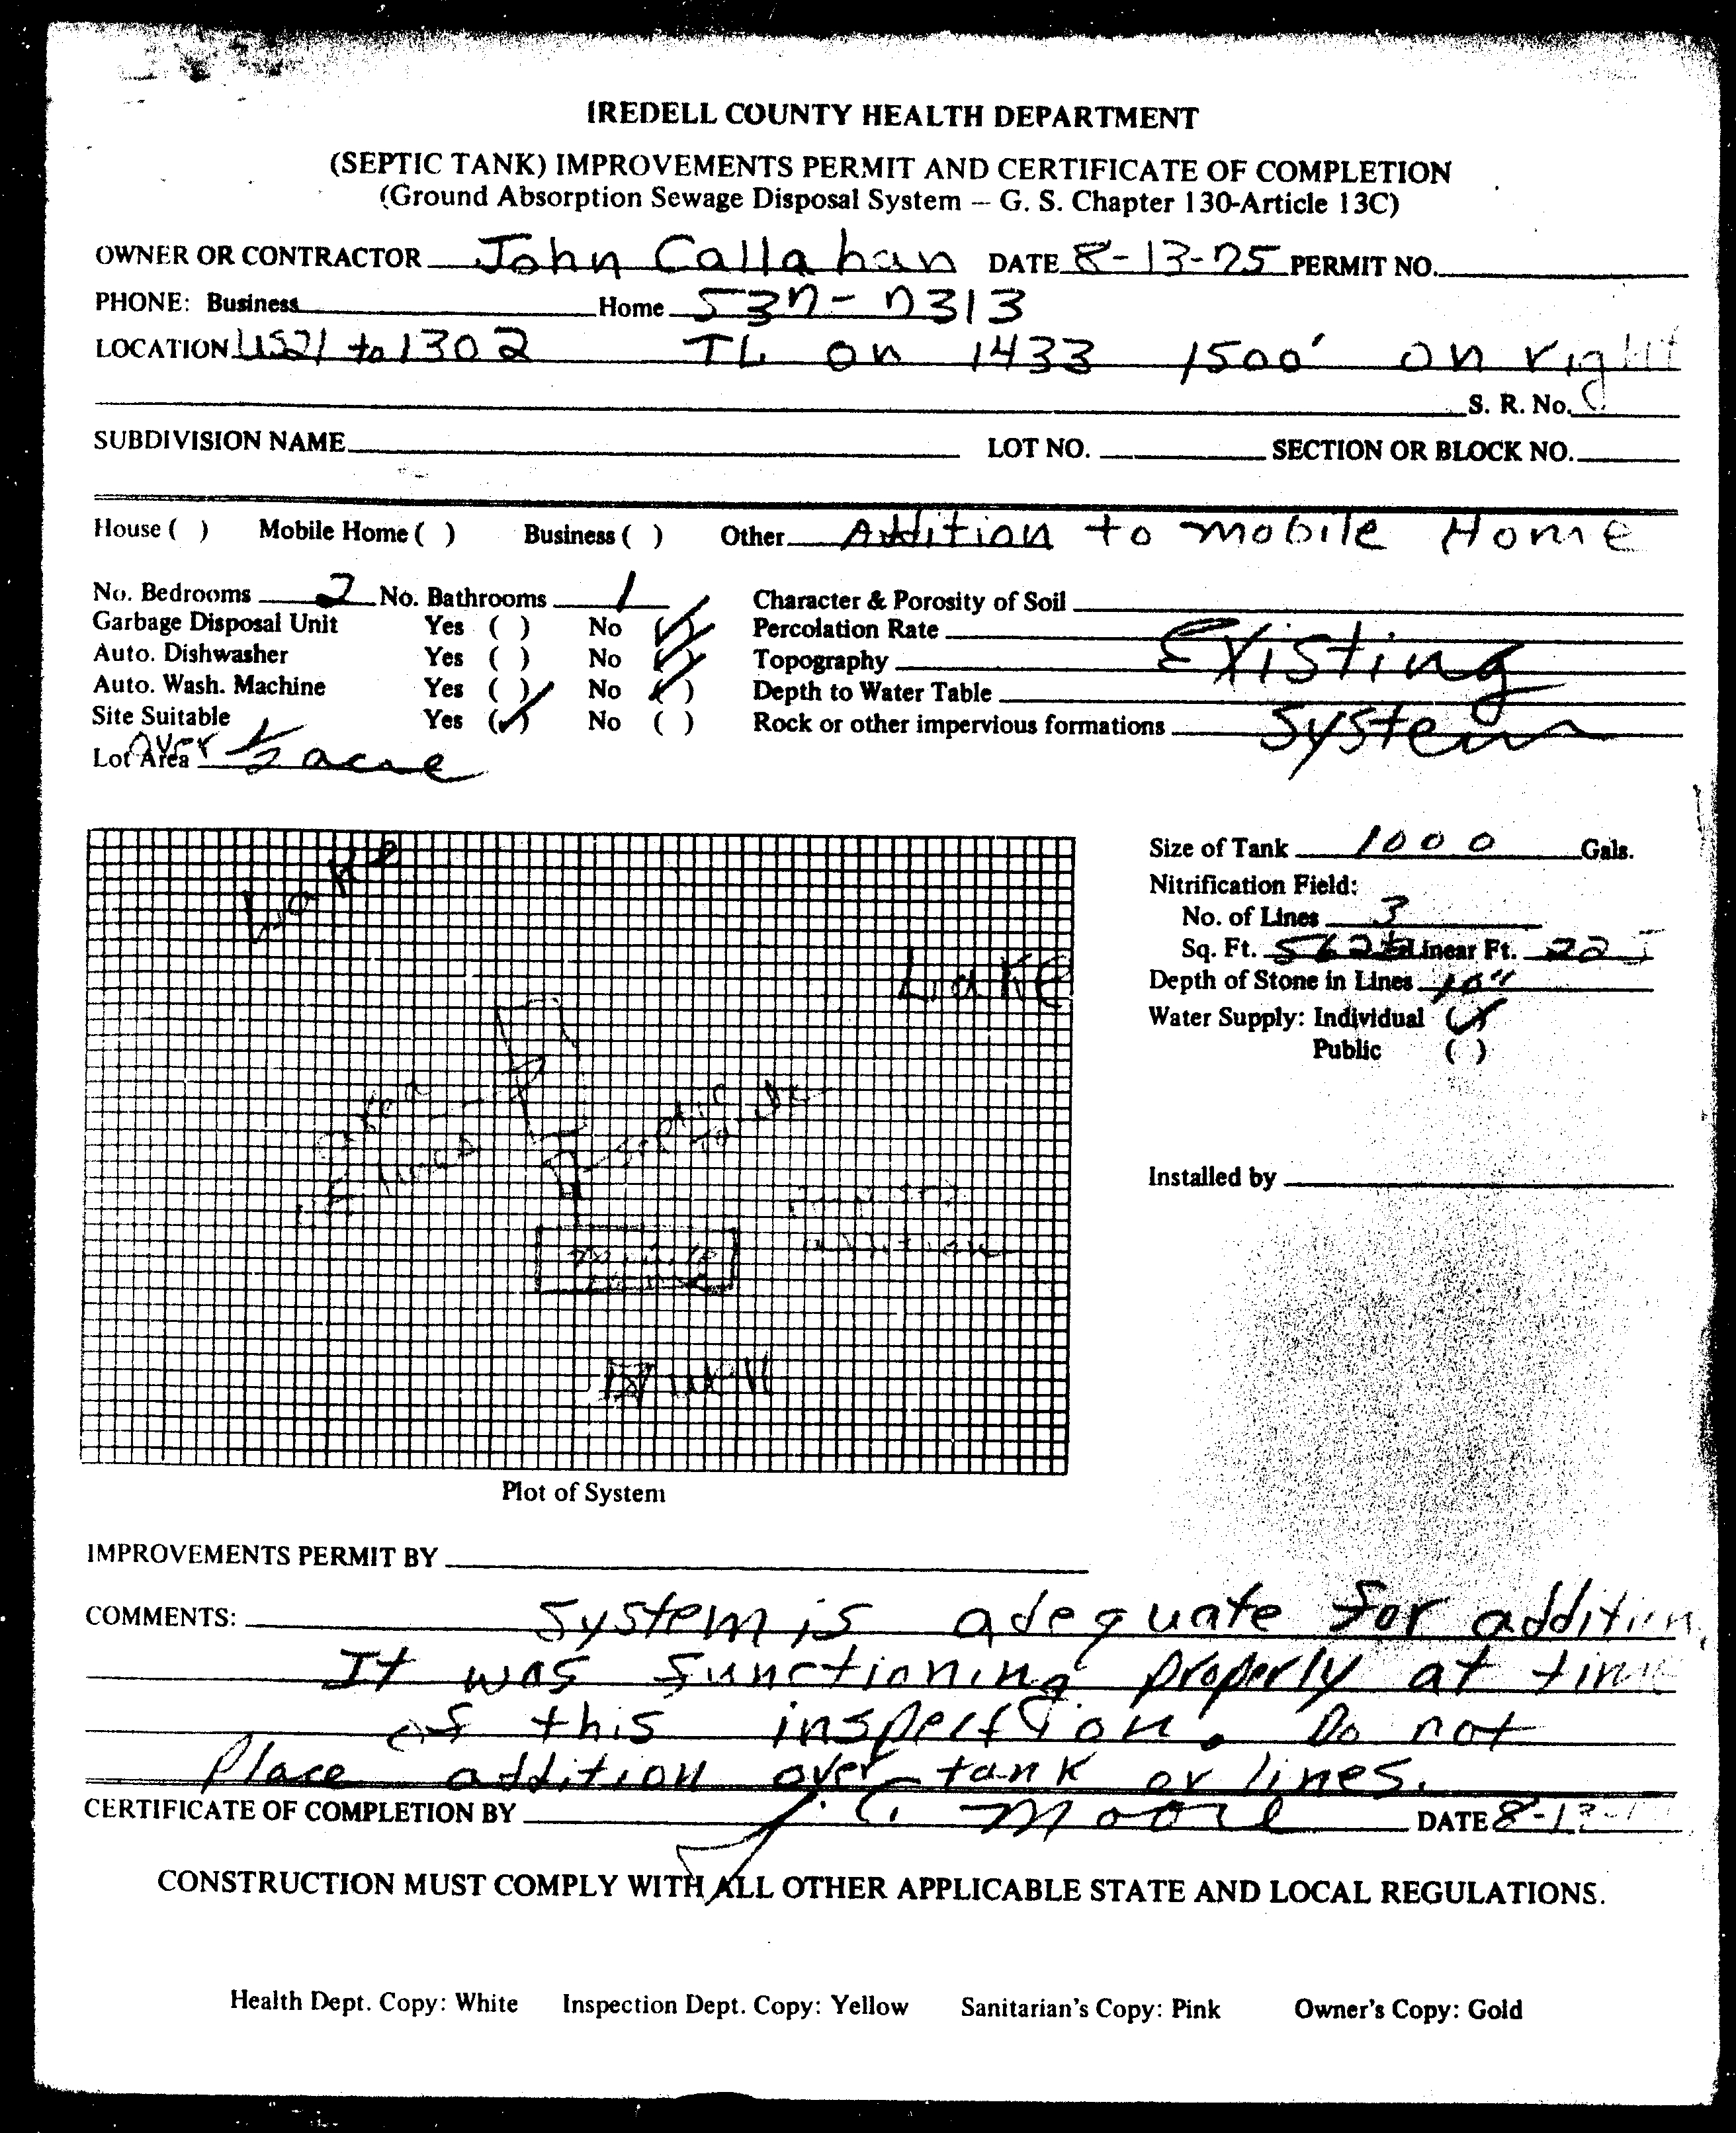 IREDELL COUNTY HEALTH DEPARTMENT
(SEPTIC TANK) IMPROVEMENTS PERMIT AND CERTIFICATE OF COMPLETION
(Ground Absorption Sewage Disposal System – G. S. Chapter 130-Article 13C)
OWNER OR CONTRACTOR John Callahan DATE 8-13-75 PERMIT NO.
PHONE: Business Home 537-7313
LOCATION US21 to 1302 TL on 1433 1500' on right
S. R. No.
SUBDIVISION NAME LOT NO. SECTION OR BLOCK NO.
House ( ) Mobile Home ( ) Business ( ) Other Addition to mobile Home
No. Bedrooms 2 No. Bathrooms 1 Character & Porosity of Soil
Garbage Disposal Unit Yes ( ) No (✓) Percolation Rate Existing
Auto. Dishwasher Yes ( ) No (✓) Topography
Auto. Wash. Machine Yes ( ) No (✓) Depth to Water Table
Site Suitable Yes (✓) No ( ) Rock or other impervious formations System
Lot Area over 1/2 acre
Size of Tank 1000 Gals.
Nitrification Field:
No. of Lines 3
Sq. Ft. 562 Linear Ft. 225
Depth of Stone in Lines 10"
Water Supply: Individual (✓)
Public ( )
Lake
Lake
Installed by
well
Plot of System
IMPROVEMENTS PERMIT BY
COMMENTS: System is adequate for addition.
It was functioning properly at time
of this inspection. Do not
Place addition over tank or lines.
CERTIFICATE OF COMPLETION BY J. C. Moore DATE 8-13-
CONSTRUCTION MUST COMPLY WITH ALL OTHER APPLICABLE STATE AND LOCAL REGULATIONS.
Health Dept. Copy: White Inspection Dept. Copy: Yellow Sanitarian's Copy: Pink Owner's Copy: Gold